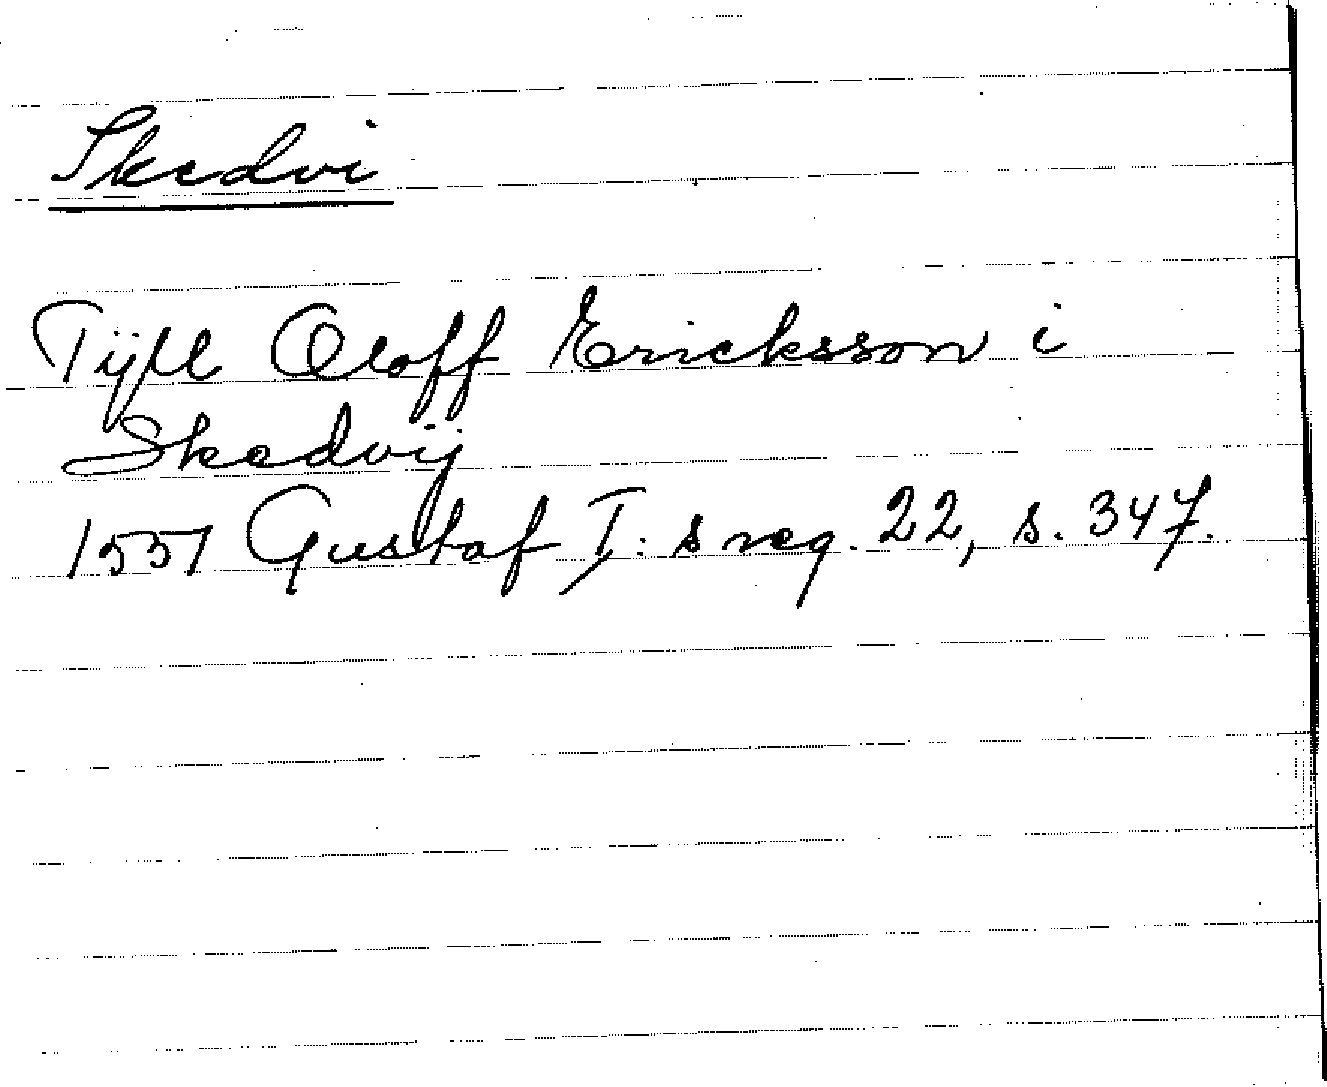 Skedvi
Tijll Oloff Ericksson i
Skedvij
1551 Gustaf I:s reg. 22, s. 347.